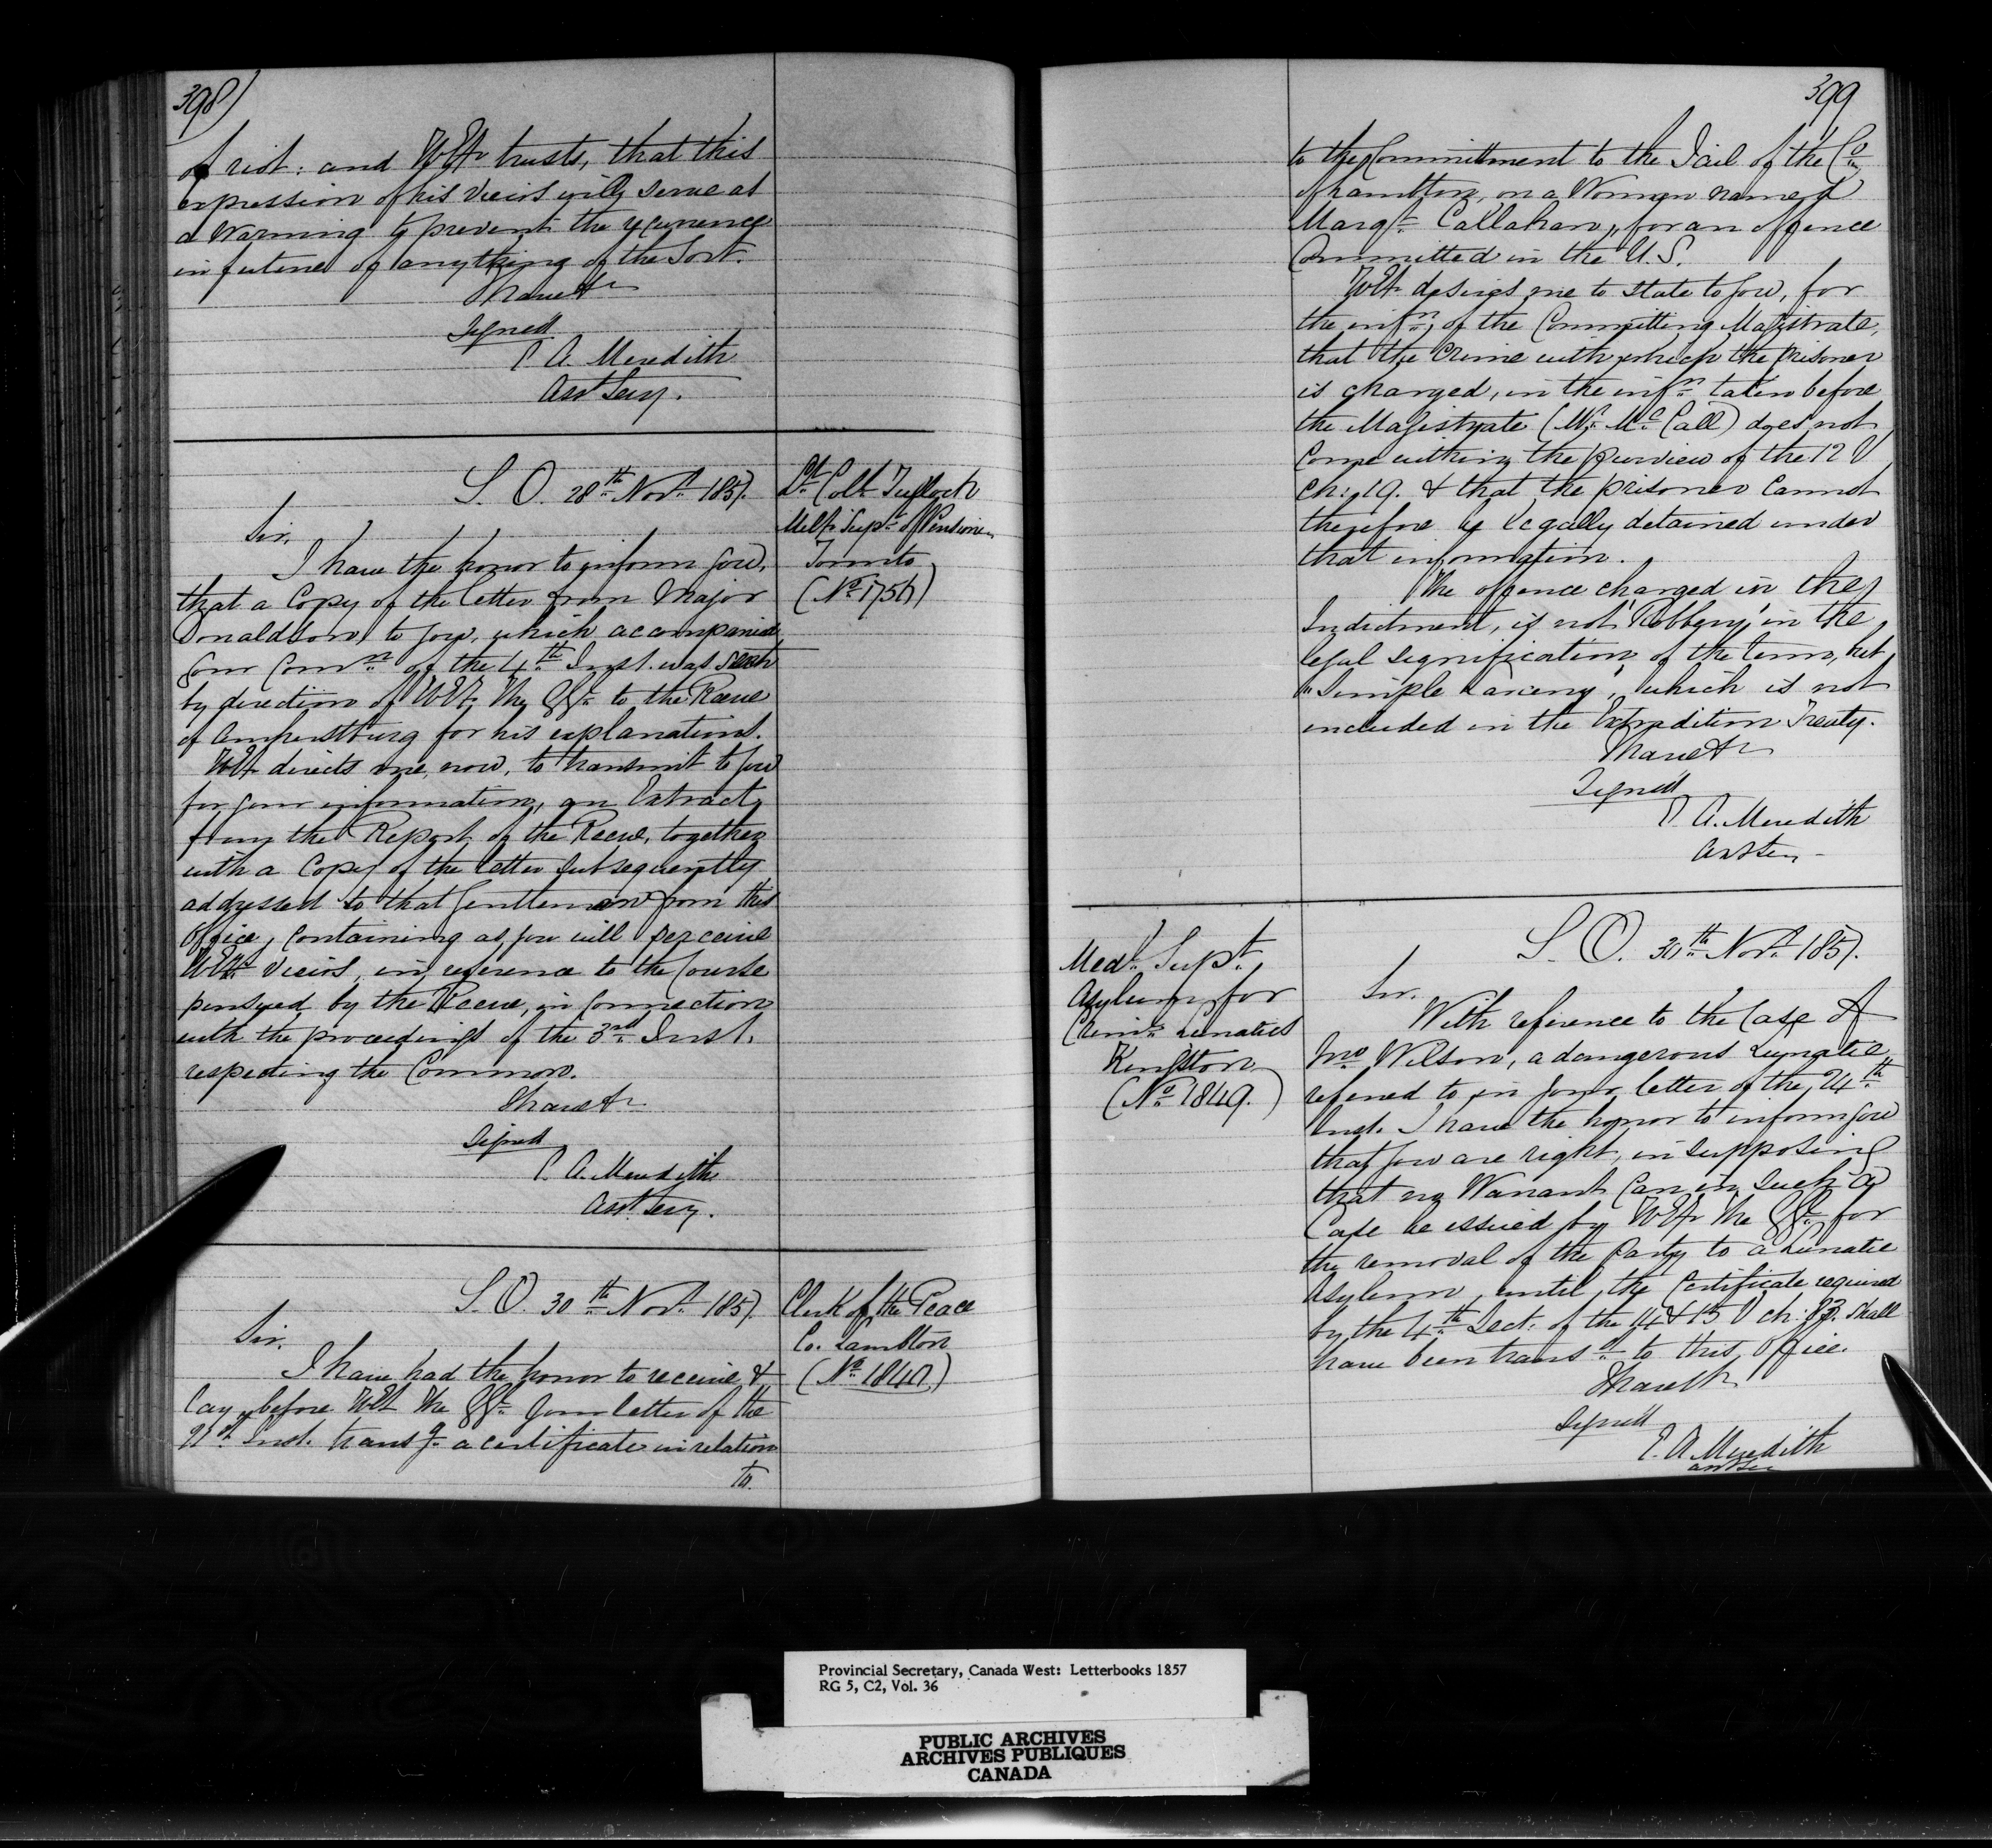 398)
of riot: and H.E. trusts, that this
expression of his views will serve as
a Warning to prevent the recurrence
in future of anything of the Sort.
I have &c
Signed
E. A. Meredith
Asst Secy.
S. O. 28th Novr. 1857.
Lt. Coll. Tulloch
Sir,
Supt. of Pensions
I have the honor to inform you,
Toronto
that a Copy of the letter from Major
(No. 1756)
Donaldson, to you, which accompanied
your Comn. of the 4th Inst. was sent
by direction of H.E. the to the Reeve
of Amherstburg for his explanations.
H.E. directs me, now, to transmit to you
for your information, an Extract
from the Report of the Reeve, together
with a Copy of the letter subsequently
addressed to that Gentleman from this
Office, Containing as you will perceive
H.E. views, in reference to the Course
pursued by the Reeve, in Connection
with the proceedings of the 3rd Inst.
respecting the Common.
I have &c
Signed
E. A. Meredith
Asst. Secy.
S. O. 30th Novr. 1857.
Clerk of the Peace
Sir,
Co. Lambton
I have had the honor to receive &
lay before H.E. the your letter of the
Inst. transg. a certificate in relation
to
399
to the Committment to the Jail of the Co.
of Lambton, on a Woman named
Margt. Callahan, for an offence
Committed in the U.S.
H.E. desires me to state to you, for
the infn. of the Committing Magistrate,
that the Crime with which the prisoner
is charged, in the infn. taken before
the Magistrate (Mr. McCall) does not
Come within the purview of the 12 V
Ch: 19. & that the prisoner Cannot
therefore be legally detained under
that information.
The offence charged in the
Indictment, is not 'Robbery' in the
legal signification of the term, but
"Simple Larceny", which is not
included in the Extradition Treaty.
I have &c
Signed
E. A. Meredith
Asst Secy
Medl. Supt.
Asylum for
Criml. Lunatics
Kingston
(No. 1849.)
S. O. 30th Novr. 1857.
Sir.
With reference to the Case of
Jno. Wilson, a dangerous Lunatic
referred to in your letter of the 24th
Inst. I have the honor to inform you
that you are right, in supposing
that no Warrant Can in such a
Case be issued by H.E. the for
the removal of the Party to a Lunatic
Asylum, until, the Certificate required
by the 4th Sect: of the 14 & 15 V ch: 83. shall
have been transd. to this Office.
I have &c
Signed
E. A. Meredith
Asst Secy
Provincial Secretary, Canada West: Letterbooks 1857
RG 5, C2, Vol. 36
PUBLIC ARCHIVES
ARCHIVES PUBLIQUES
CANADA